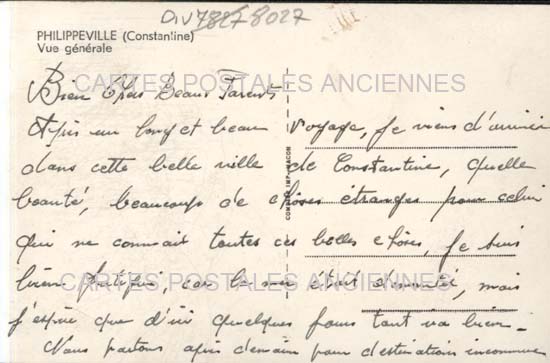 DIV 78278027
PHILIPPEVILLE (Constantine)
Vue générale
CARTES POSTALES ANCIENNES
Bien Chers Beaux Parents
Après un long et beau voyage, je viens d'arriver
dans cette belle ville de Constantine, quelle
beauté, beaucoup de choses étranges pour celui
qui ne connait toutes ces belles choses, je suis
bien fatigué, car la mer était démontée, mais
j'espère que d'ici quelques jours tout ira bien.
Nous partons après demain pour destination inconnue
CARTES POSTALES ANCIENNES
COMBIER IMP. MACON